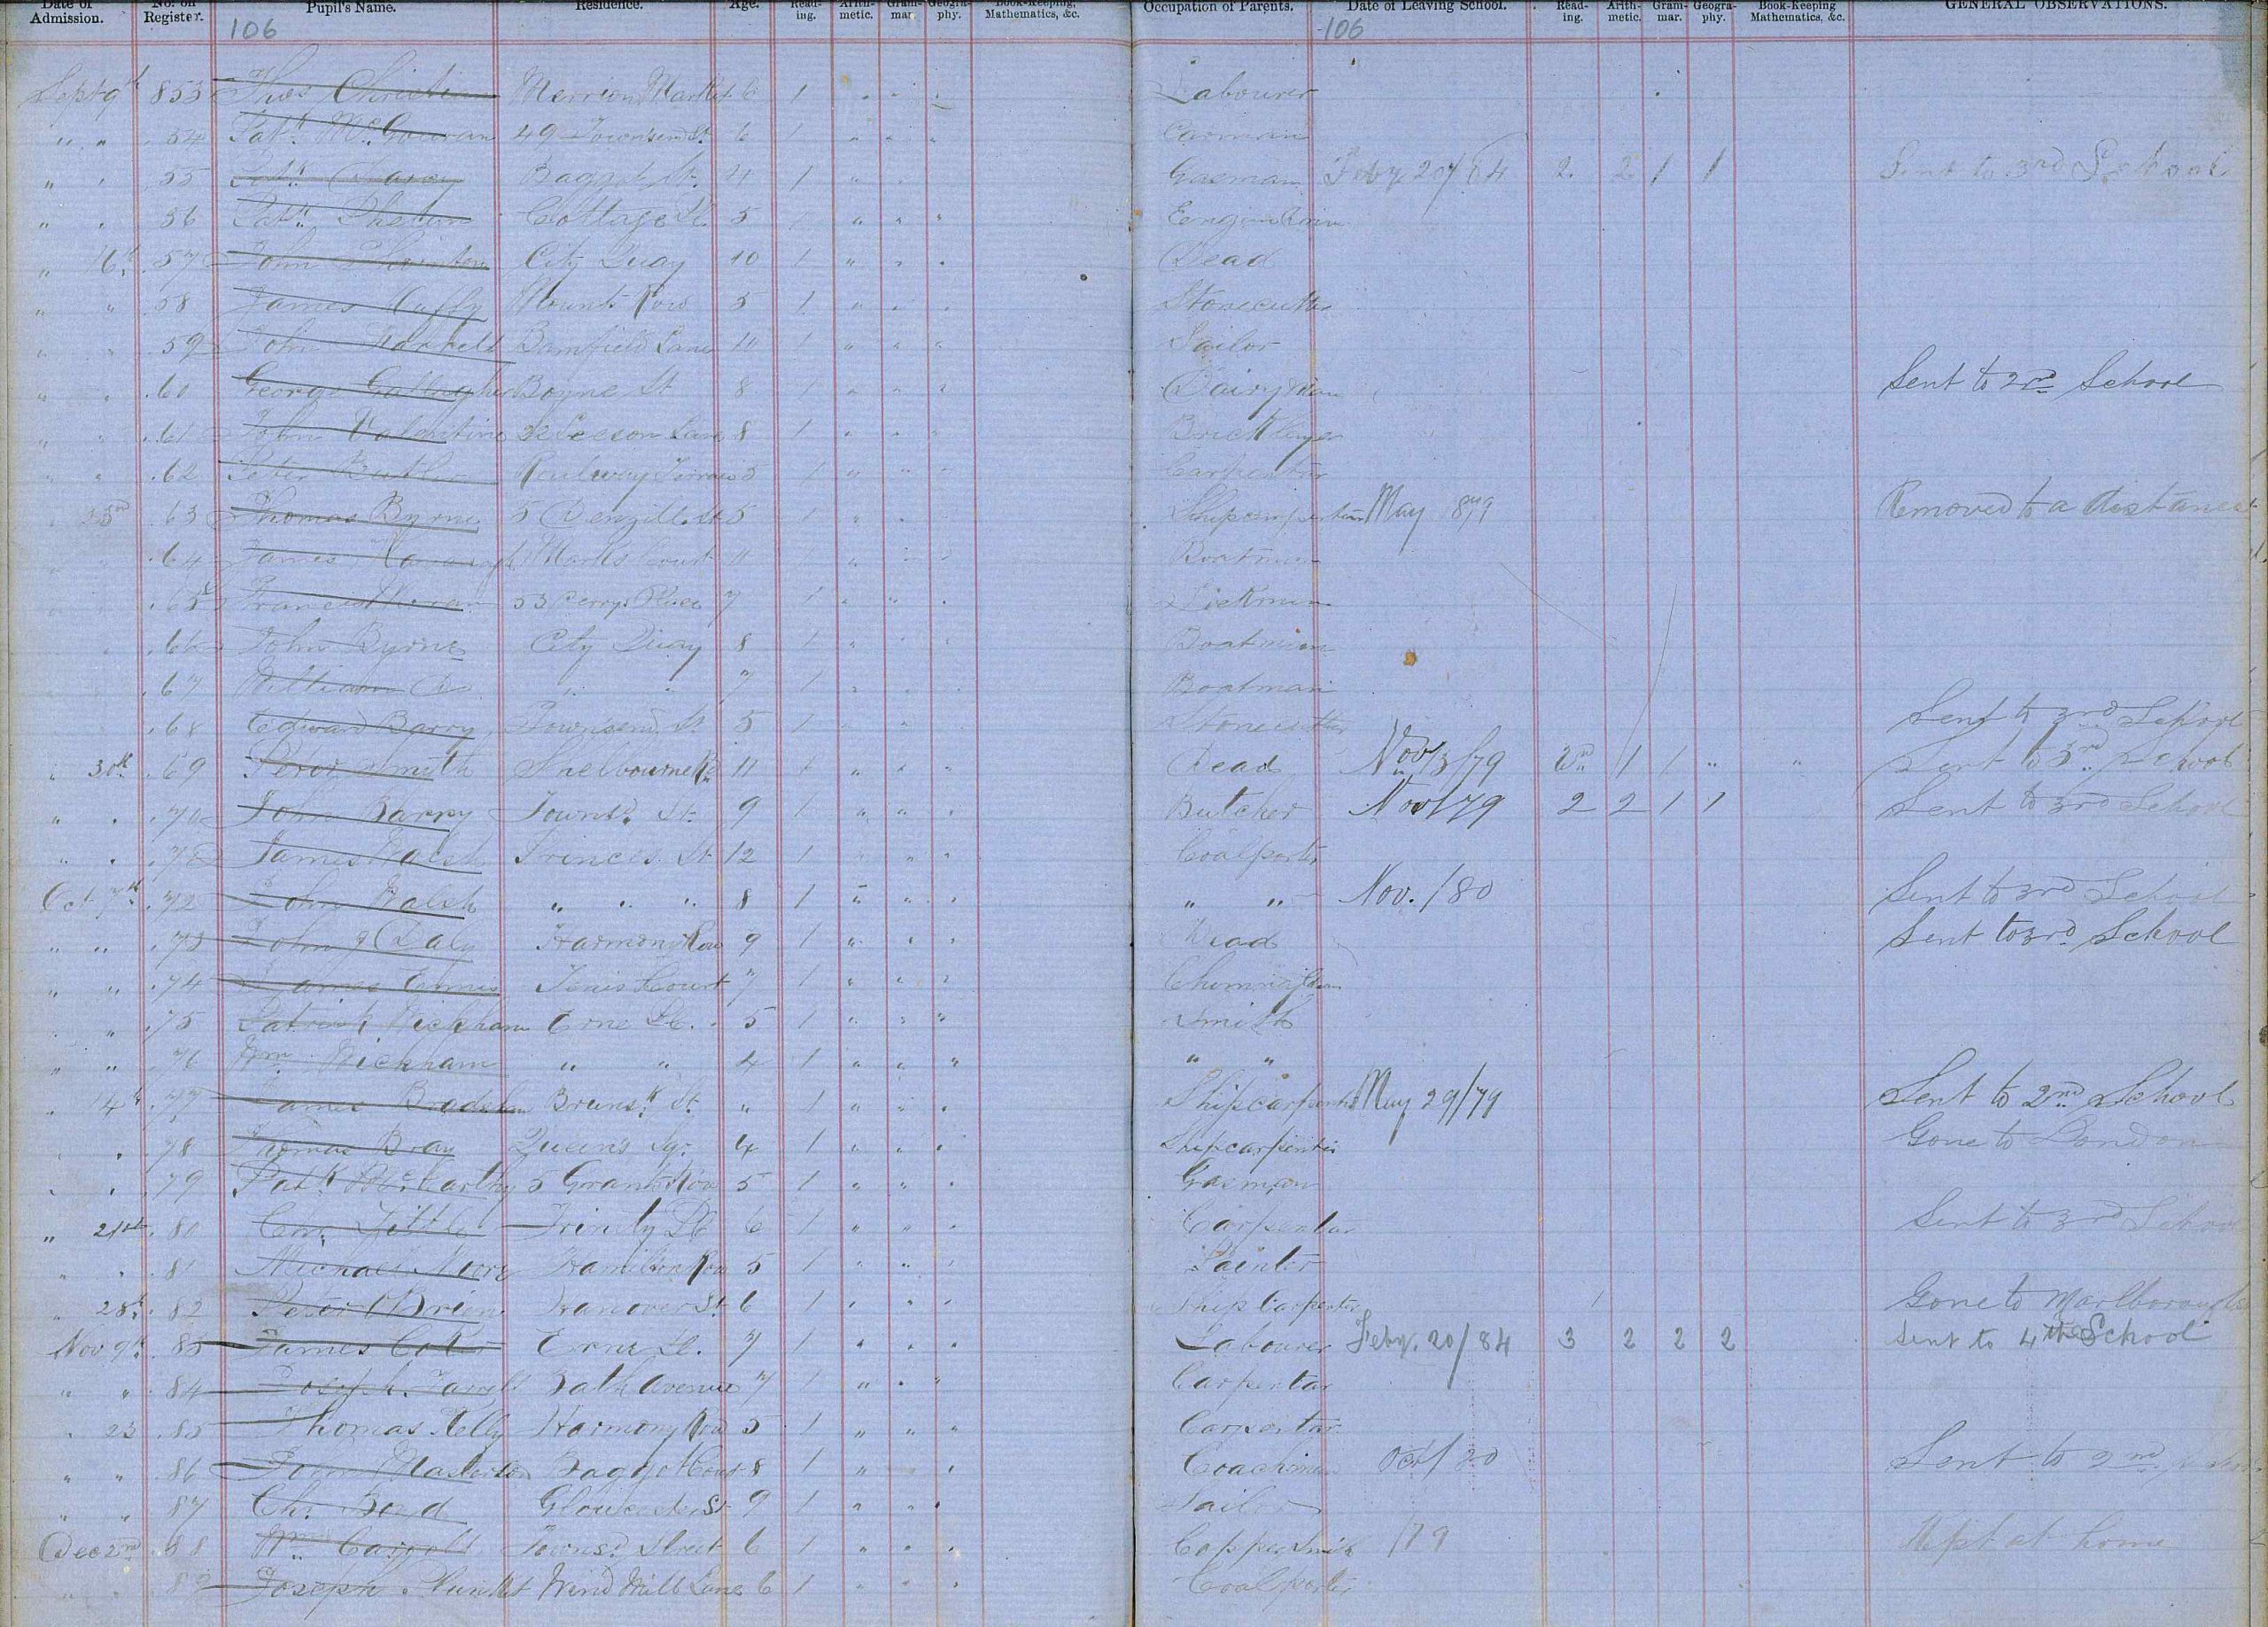 Date of Admission. No. on Register. Pupil's Name. Residence. Age. Read-ing. Arith-metic. Gram-mar. Geogra-phy. Book-Keeping, Mathematics, &c. Occupation of Parents. Date of Leaving School. Read-ing. Arith-metic. Gram-mar. Geogra-phy. Book-Keeping Mathematics, &c. GENERAL OBSERVATIONS.
106 106
Sept 9th 853 Thos Christian Merrion Market 6 1 " " " Labourer
" " 54 Patk. McGowran 49 Townsend St. 6 1 " " " Carman
" " 55 Patk. Baggot St. 4 1 " " Gasman Feby 20/84 2 2 1 1 Sent to 3rd School
" " 56 Patk. Phelan Cottage Pl 5 1 " " "
" 16th 57 John Thornton City Quay 10 1 " " " Dead
" " 58 James Duffy Mount Row 5 1 " " " Stonecutter
" " 59 John Bamfield Lane 10 1 " " " Sailor
" " 60 George Gallagher Boyne St 8 1 " " " Dairyman Sent to 2nd School
" " 61 John Valentine Leeson Lane 8 1 " " " Bricklayer
" " 62 Peter Butler Railway Terrace 5 1 " " " Carpenter
" 23rd 63 Thomas Byrne 5 Denzille St 5 1 " " Shipcarpenter May 879 Removed to a distance
" " 64 James Kavanagh Marks Court 11 " " " Boatman
" " 65 Francis 53 Percy Place 7 1 " " "
" 66 John Byrne City Quay 8 1 " " " Boatman
67 William Do " " 7 1 " " " Boatman
68 Edward Barry Townsend St 5 1 " " Stonecutter Sent to 3rd School
" 30th 69 Peter Smyth Shelbourne Rd 11 1 " " " Dead Nov 13/79 2nd 1 1 " " Sent to 3rd School
" " 70 John Barry Townsd. St. 9 1 " " " Butcher Nov/79 2 2 1 1 Sent to 3rd School
" " 71 James Walsh Princes St 12 1 " " " Coalporter
Oct 7th 72 John Walsh " " " 8 1 " " " " " Nov. /80 Sent to 3rd School
" " 73 John J Daly Harmony Row 9 1 " " " Dead Sent to 3rd School
" " 74 James Ennis Tenis Court 7 1 " " "
" " 75 Patrick Wickham Erne Pl. 5 1 " " " Smith
" " 76 Wm. Wickham " " 4 1 " " " " "
" 14th 77 James Bradshaw Brunsk. St. " 1 " " " Shipcarpenter May 29/79 Sent to 2nd School
" " 78 Thomas Bray Queens Sqr. 4 1 " " " Shipcarpenter Gone to London
" " 79 Patk McCarthy 5 Grants Row 5 1 " " " Gasman
" 21st 80 Little Trinity Pl 6 1 " " " Carpenter Sent to 3rd School
" " 81 Michael Moore Hamilton Row 5 1 " " " Painter
" 28th 82 Peter O'Brien Hanover St. 6 1 " " " Ship Carpenter Gone to Marlborough
Nov 9th 83 James Erne Pl. 7 1 " " " Labourer Feby. 20/84 3 2 2 2 Sent to 4th School
" " 84 Joseph Farrell Bath Avenue 7 1 " " " Carpenter
" 23 85 Thomas Kelly Harmony Row 5 1 " " " Carpenter
" " 86 John Masterson Baggot Court 8 1 " " " Coachman Oct/80 Sent to 2nd School
" " 87 Chr. Boyd Gloucester St 9 1 " " " Sailor
Dec 2nd 88 Wm. Carroll Townsd. Street 6 1 " " " Coppersmith /79 Kept at home
" " 89 Joseph Plunket Wind Mill Lane 6 1 " " " Coalporter